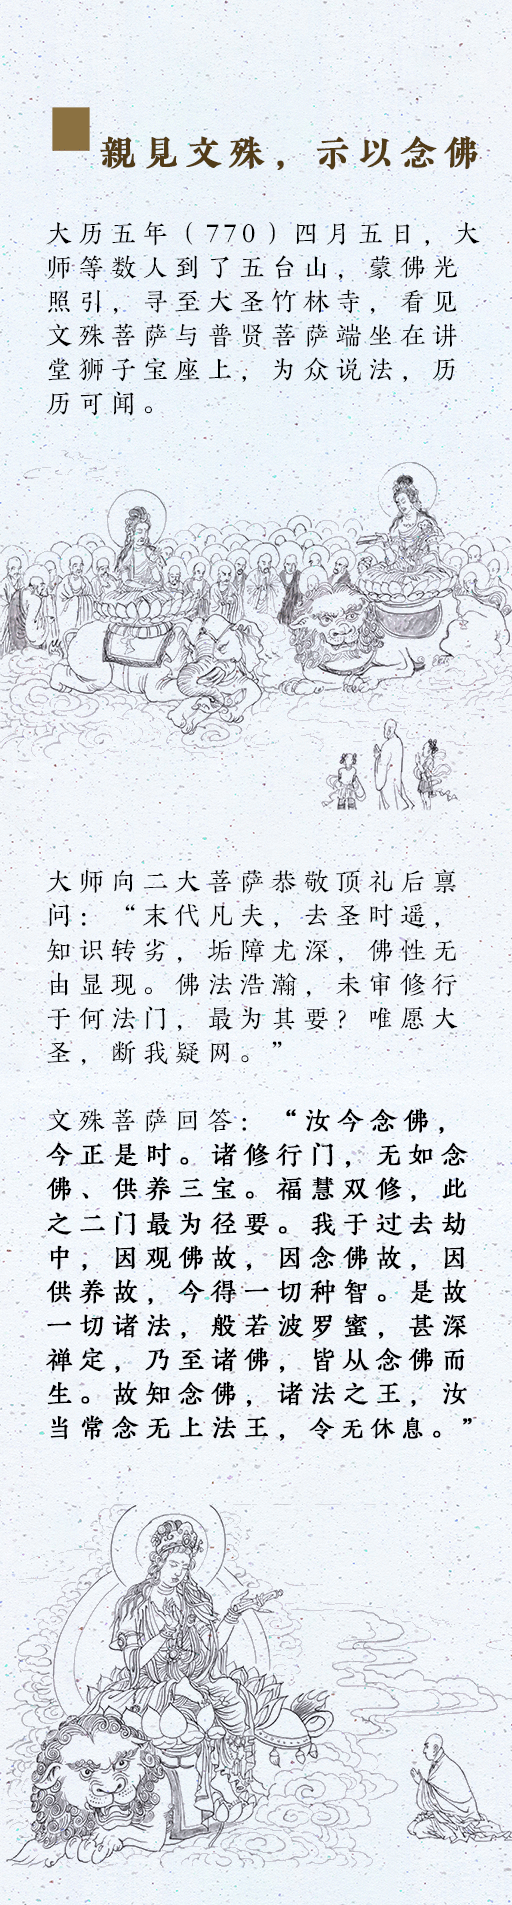 親見文殊，示以念佛
大历五年（770）四月五日，大
师等数人到了五台山，蒙佛光
照引，寻至大圣竹林寺，看见
文殊菩萨与普贤菩萨端坐在讲
堂狮子宝座上，为众说法，历
历可闻。
大师向二大菩萨恭敬顶礼后禀
问：“末代凡夫，去圣时遥，
知识转劣，垢障尤深，佛性无
由显现。佛法浩瀚，未审修行
于何法门，最为其要？唯愿大
圣，断我疑网。”
文殊菩萨回答：“汝今念佛，
今正是时。诸修行门，无如念
佛、供养三宝。福慧双修，此
之二门最为径要。我于过去劫
中，因观佛故，因念佛故，因
供养故，今得一切种智。是故
一切诸法，般若波罗蜜，甚深
禅定，乃至诸佛，皆从念佛而
生。故知念佛，诸法之王，汝
当常念无上法王，令无休息。”